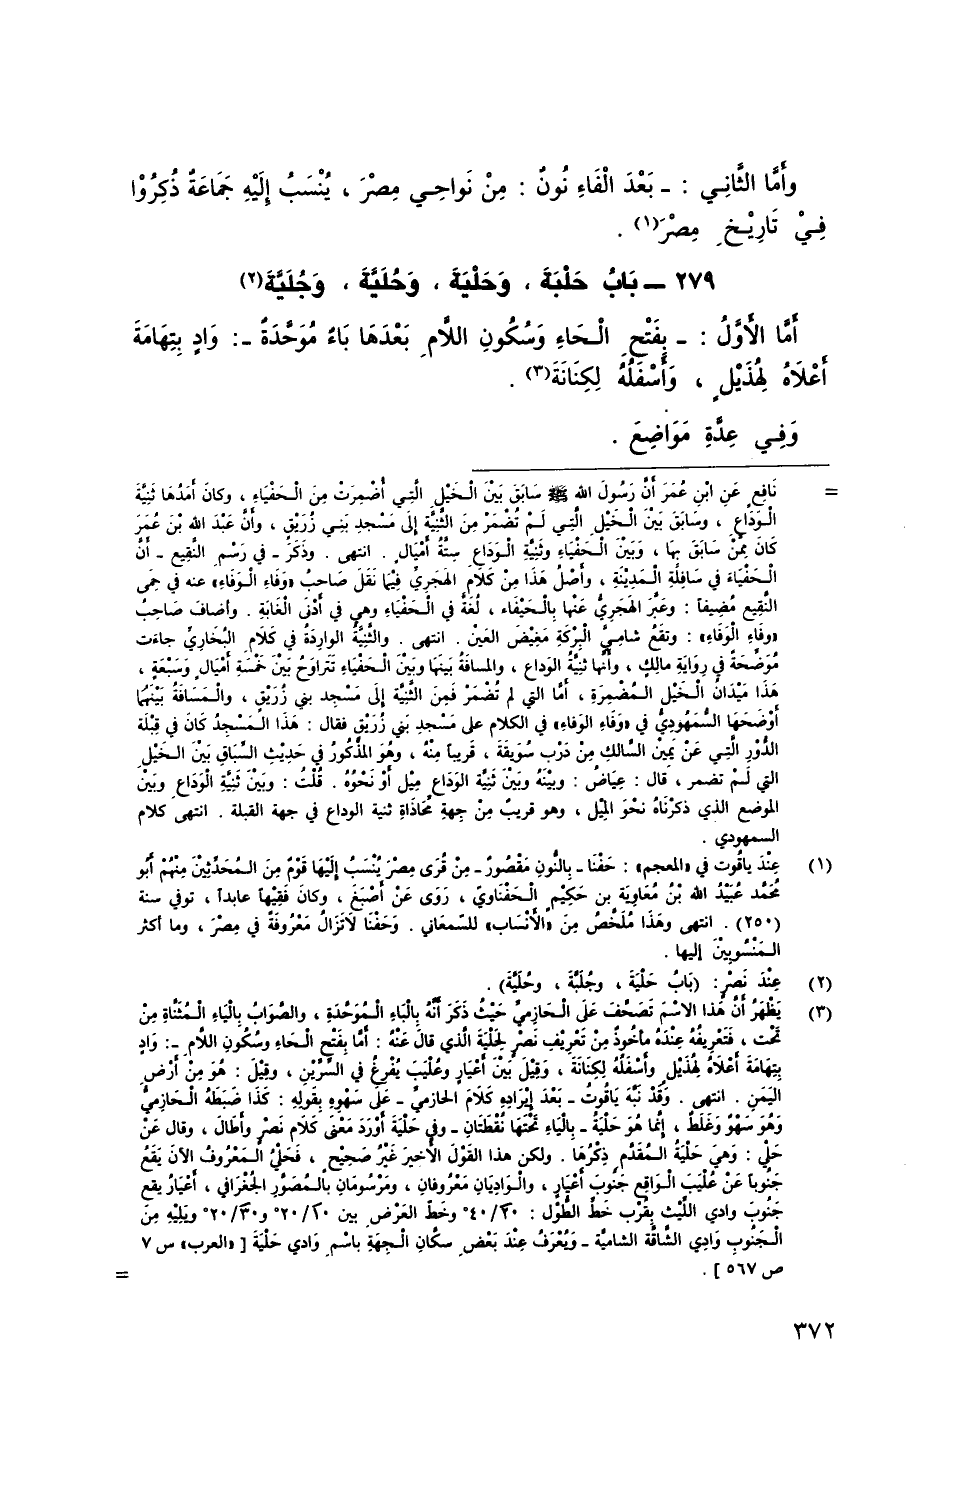 وأَمَّا الثَّانِي : ـ بَعْدَ الْفَاءِ نُونٌ : مِنْ نَواحِي مِصْرَ ، يُنْسَبُ إِلَيْهِ جَمَاعَةٌ ذُكِرُوْا
فِيْ تَارِيْخِ مِصْرَ(١) .
٢٧٩ ــ بَابُ حَلْبَةَ ، وَحَلْيَةَ ، وَحُلَيَّةَ ، وَجُلَيَّةَ(٢)
أَمَّا الأَوَّلُ : ـ بِفَتْحِ الْحَاءِ وَسُكُونِ اللَّامِ بَعْدَهَا بَاءٌ مُوَحَّدَةٌ ـ: وَادٍ بِتِهَامَةَ
أَعْلَاهُ لِهُذَيْلٍ ، وَأَسْفَلُهُ لِكِنَانَةَ(٣) .
وَفِي عِدَّةِ مَوَاضِعَ .
= نَافِعٍ عَنِ ابْنِ عُمَرَ أَنَّ رَسُولَ الله ﷺ سَابَقَ بَيْنَ الْخَيْلِ الَّتِي أُضْمِرَتْ مِنَ الْحَفْيَاءِ ، وكَانَ أَمَدُهَا ثَنِيَّةَ
الْوَدَاعِ ، وسَابَقَ بَيْنَ الْخَيْلِ الَّتِي لَمْ تُضْمَرْ مِنَ الثَّنِيَّةِ إِلَى مَسْجِدِ بَنِي زُرَيْقٍ ، وأَنَّ عَبْدَ الله بْنَ عُمَرَ
كَانَ مِمَّنْ سَابَقَ بِهَا ، وَبَيْنَ الْحَفْيَاءِ وثَنِيَّةِ الْوَدَاعِ سِتَّةُ أَمْيَالٍ . انتهى . وذَكَرَ ـ في رَسْمِ النَّقِيعِ ـ أَنَّ
الْحَفْيَاءَ في سَافِلَةِ الْمَدِيْنَةِ ، وأَصْلُ هَذَا مِنْ كَلَامِ الْهَجَرِيِّ فِيْمَا نَقَلَ صَاحِبُ «وَفَاءِ الْوَفَاءِ» عنه في حِمَى
النَّقِيعِ مُضِيفاً : وعَبَّرَ الهَجَرِيُّ عَنْهَا بِالْحَيْفَاء ، لُغَةٌ في الْحَفْيَاءِ وهي في أَدْنَى الْغَابَةِ . وأضافَ صَاحِبُ
«وفَاءِ الْوَفَاءِ» : وتَقَعُ شامِيَّ الْبِرْكَةِ مَغِيْضِ الْعَيْنِ . انتهى . والثَّنِيَّةُ الوارِدَةُ في كَلَامِ الْبُخَارِيِّ جاءَت
مُوَضَّحَةً في رِوَايَةِ مالِكٍ ، وأَنَّها ثَنِيَّةُ الوداعِ ، والمسافَةُ بينَها وبَيْنَ الْحَفْيَاءِ تَتَرَاوَحُ بَيْنَ خَمْسَةِ أَمْيَالٍ وَسَبْعَةٍ ،
هَذَا مَيْدَانُ الْخَيْلِ الْمُضْمَرَةِ ، أَمَّا التي لم تُضْمَرْ فَمِنَ الثَّنِيَّةِ إِلَى مَسْجِدِ بني زُرَيْقٍ ، والْمَسَافَةُ بَيْنَهُمَا
أَوْضَحَهَا السَّمْهُودِيُّ في «وَفَاءِ الوفاء» في الكلام على مَسْجِدِ بَنِي زُرَيْقٍ فقال : هَذَا الْمَسْجِدُ كَانَ في قِبْلَةِ
الدُّوْرِ الَّتِي عَنْ يَمِيْنِ السَّالِكِ مِنْ دَرْبِ سُوَيقَة ، قَرِيباً مِنْهُ ، وهُوَ الْمَذْكُورُ في حَدِيْثِ السِّبَاقِ بَيْنَ الْخَيْلِ
التي لَمْ تضمر ، قال : عِيَاضٌ : وبيْنَهُ وبَيْنَ ثَنِيَّةِ الوَدَاعِ مِيْل أَوْ نَحْوُهُ . قُلْتُ : وبَيْنَ ثَنِيَّةِ الْوَدَاعِ وبَيْنَ
الموضع الذي ذَكَرْنَاهُ نَحْوَ الْمِيْلِ ، وهو قَرِيبٌ مِنْ جِهةِ مُحَاذَاةِ ثنية الوداع في جهة القبلة . انتهى كلام
السمهودي .
(١) عِنْدَ ياقُوت في «المعجم» : حَفْنَا ـ بِالنُّونِ مَقْصُورٌ ـ مِنْ قُرَى مِصْرَ يُنْسَبُ إِلَيْهَا قَوْمٌ مِنَ الْمُحَدِّثِيْنَ مِنْهُمْ أَبُو
مُحَمَّد عُبَيْدُ الله بْنُ مُعَاوِيَة بن حَكِيْمٍ الْحَفْنَاوِيُّ ، رَوَى عَنْ أَصْبَغَ ، وكان فَقِيْهاً عابداً ، توفي سنة
(٢٥٠) . انتهى وهَذَا مُلَخَّصٌ مِنَ «الأَنْسَابِ» للسَّمعاني . وَحَفْنَا لَاتَزَالُ مَعْرُوفَةً في مِصْرَ ، وما أكثر
الْمَنْسُوبِيْنَ إليها .
(٢) عِنْدَ نَصْرٍ : (بَابُ حَلْيَةَ ، وجُلَيَّةَ ، وحُلَيَّةَ) .
(٣) يَظْهَرُ أَنَّ هَذَا الاسْمَ تَصَحَّفَ عَلَى الْحَازِمِيِّ حَيْثُ ذَكَرَ أَنَّهُ بِالْبَاءِ الْمُوَحَّدَةِ ، والصَّوَابُ بِالْيَاءِ الْمُثَنَّاةِ مِنْ
تَحْت ، فَتَعْرِيفُهُ عِنْدَهُ مأخُوذٌ مِنْ تَعْرِيْفِ نَصْرٍ لِحَلْيَةَ الَّذي قالَ عَنْهُ : أَمَّا بِفَتْحِ الْحاءِ وسُكُونِ اللَّامِ ـ: وَادٍ
بِتِهَامَةَ أَعْلَاهُ لِهُذَيْلٍ وأَسْفَلُهُ لِكِنَانَةَ ، وَقِيْلَ بَيْنَ أَعْيَارٍ وعُلْيَبَ يُفْرِغُ في السِّرَّيْنِ ، وقِيْلَ : هُوَ مِنْ أَرْضِ
اليَمَنِ . انتهى . وقَدْ نَبَّهَ يَاقُوتُ ـ بَعْدَ إِيْرَادِهِ كَلَامَ الحازِمِيِّ ـ عَلَى سَهْوِهِ بِقَولِهِ : كَذَا ضَبَطَهُ الْحَازِمِيُّ
وَهُوَ سَهْوٌ وَغَلَطٌ ، إِنَّمَا هُوَ حَلْيَةُ ـ بِالْيَاءِ تَحْتَهَا نُقْطَتَانِ ـ وفي حَلْيَةَ أَوْرَدَ مَعْنَى كَلَامِ نَصْرٍ وأَطَالَ ، وقال عَنْ
حَلْيٍ : وَهِيَ حَلْيَةُ الْمُقَدَّمِ ذِكْرُهَا . ولكن هذا القَوْلَ الأَخِيرَ غَيْرُ صَحِيْحٍ ، فَحَلْيُ الْمَعْرُوفُ الآن يَقَعُ
جَنُوباً عَنْ عُلْيَبَ الْوَاقِعِ جَنُوبَ أَعْيَارٍ ، والْوَادِيَانِ مَعْرُوفانِ ، ومَرْسُومَانِ بِالْمُصَوَّرِ الْجُغْرَافِي ، أَعْيَارُ يقع
جَنُوبَ وادي اللِّيْثِ بِقُرْبِ خَطِّ الطُّوْلِ : ٤٠/٣٠° وخَطِّ العَرْضِ بين ٢٠/٢٠° و٢٠/٣٠° ويَلِيْهِ مِنَ
الْجَنُوبِ وَادِي الشَّاقَّة الشامِيَّة ـ ويُعْرَفُ عِنْدَ بَعْضِ سكَّان الْجِهَةِ باسْمِ وَادي حَلْيَةَ [ «العرب» س ٧
ص ٥٦٧ ] . =
٣٧٢